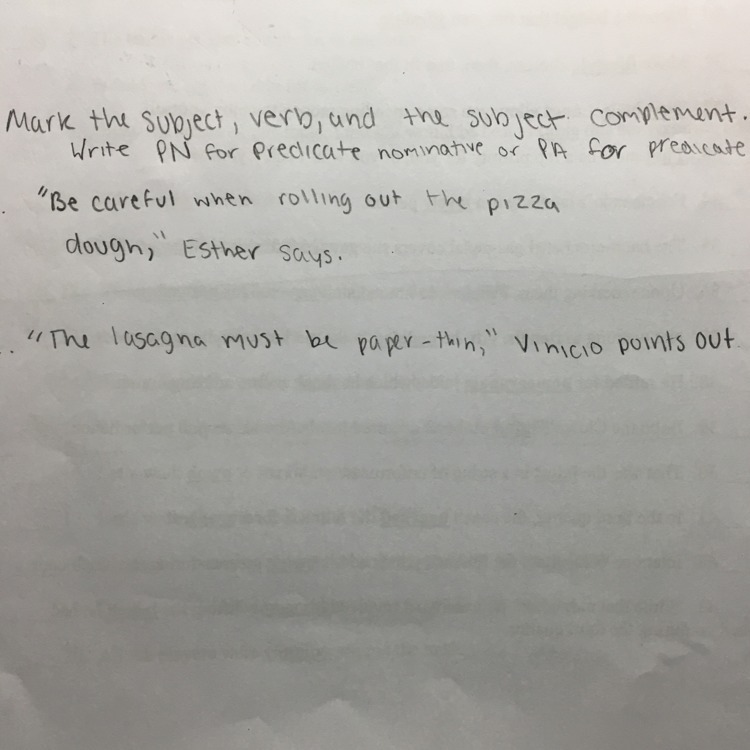 Mark the subject, verb, and the subject complement.
Write PN for predicate nominative or PA for predicate
. "Be careful when rolling out the pizza
dough," Esther says.
.. "The lasagna must be paper-thin," Vinicio points out.